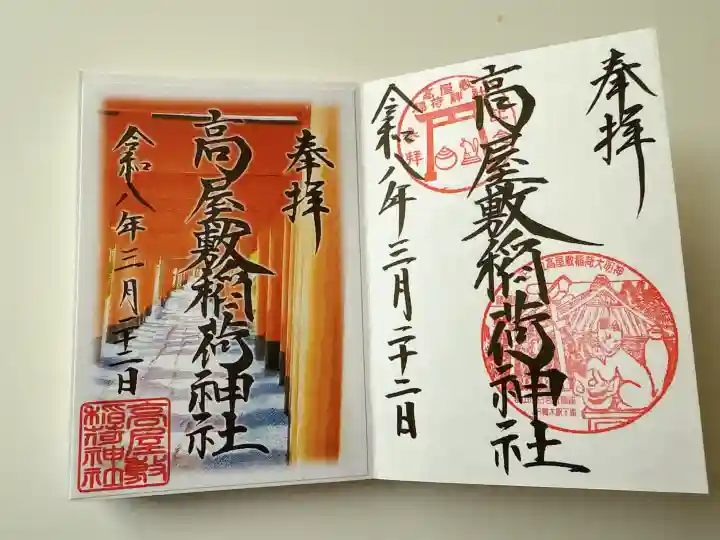 奉拝
高屋敷稲荷神社
令和八年三月二十二日
高屋敷
稲荷神社
奉拝
高屋敷稲荷神社
令和八年三月二十二日
高屋敷
稲荷神社
高屋敷稲荷大明神